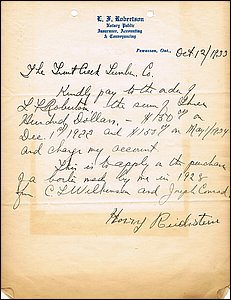 L. F. Robertson
Notary Public
Insurance, Accounting
& Conveyancing
Fewassan, Ont., Oct 12/1933
The Lumber Co.
Kindly pay to the order of
L F Robertson the sum of Three
Hundred Dollars, - $150⁰⁰ on
Dec. 1st 1933 and $150⁰⁰ on May 1/1934
and charge my account.
This is to apply on the purchase
of a made by me in 1928
from C L Wilkinson and Joseph Conrad
Henry